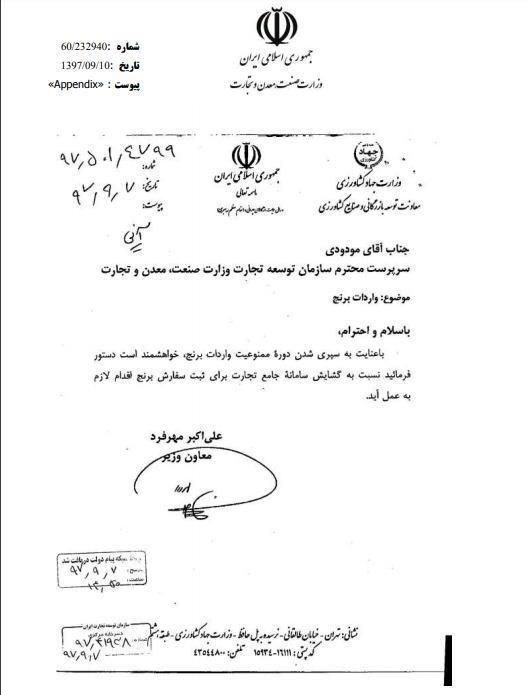 جمهوری اسلامی ایران
وزارت صنعت، معدن و تجارت
شماره :60/232940
تاریخ :1397/09/10
پیوست : «Appendix»
جهاد
وزارت جهاد کشاورزی
معاونت توسعه بازرگانی و صنایع کشاورزی
جمهوری اسلامی ایران
شماره: ۹۷٫۵۰۱٫۴۷۹۹
تاریخ: ۹۷٫۹٫۷
پیوست:
آنی
جناب آقای مودودی
سرپرست محترم سازمان توسعه تجارت وزارت صنعت، معدن و تجارت
موضوع: واردات برنج
باسلام و احترام،
باعنایت به سپری شدن دورهٔ ممنوعیت واردات برنج، خواهشمند است دستور
فرمائید نسبت به گشایش سامانهٔ جامع تجارت برای ثبت سفارش برنج اقدام لازم
به عمل آید.
علی‌اکبر مهرفرد
معاون وزیر
شبکه پیام دولت دریافت شد
۹۷٫۹٫۷
سازمان توسعه تجارت ایران
۹۷٫۹٫۷
نشانی: تهران - خیابان طالقانی - نرسیده به پل حافظ - وزارت جهاد کشاورزی - طبقه هشتم
کد پستی: ۱۶۱۱۱-۱۵۹۳۴ تلفن: ۴۳۵۴۴۸۰۰